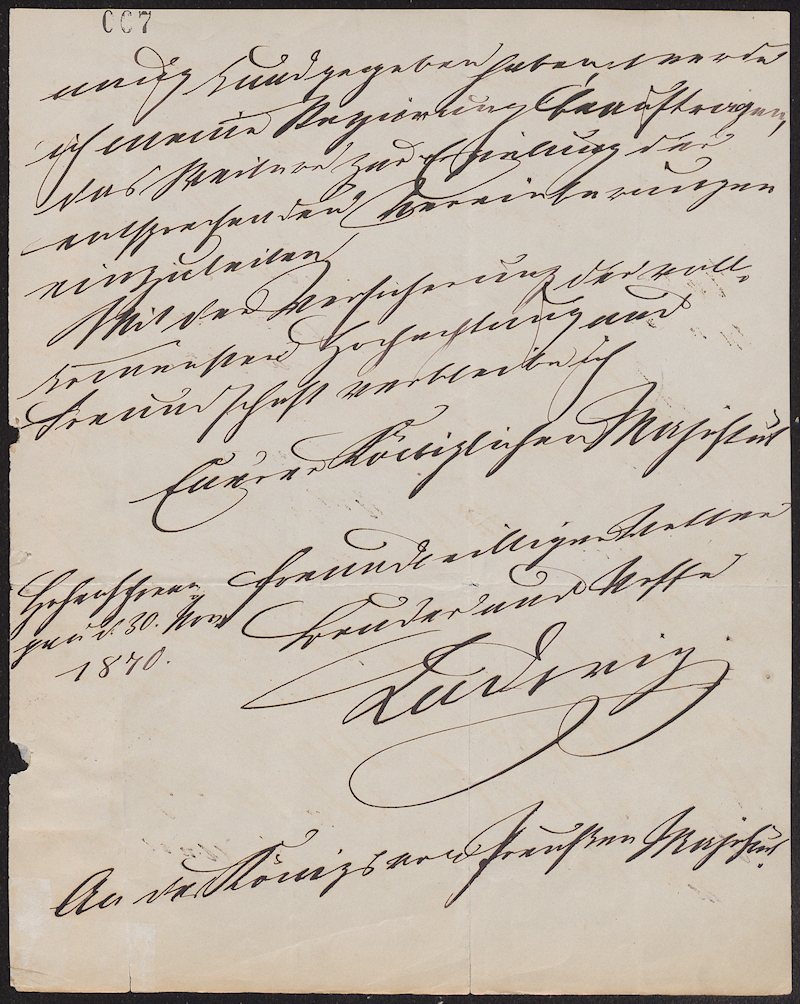 007
nossen kundgegeben haben, werde
ich meine Regierung beauftragen,
das Weitere zur Erzielung der
entsprechenden Vereinbarungen
einzuleiten.
Mit der Versicherung der voll-
kommensten Hochachtung und
Freundschaft verbleibe ich
Euerer Königlichen Majestät
freundwilliger Vetter
Bruder und Neffe
Ludwig
Hohenschwan
gau d. 30. Nov.
1870.
An des Königs von Preußen Majestät.